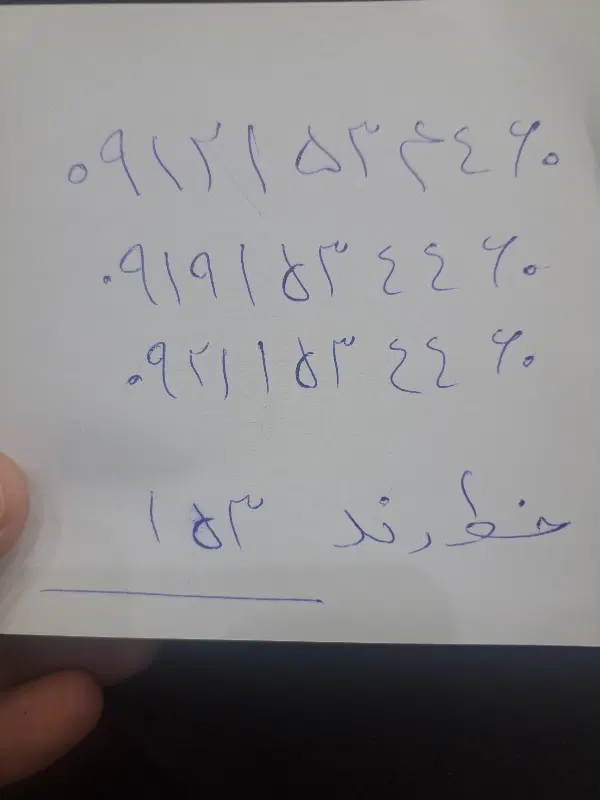 ۰۹۱۲۱۵۳۴۴۶۰
۰۹۱۹۱۵۳۴۴۶۰
۰۹۲۱۱۵۳۴۴۶۰
خط رند ۱۵۳